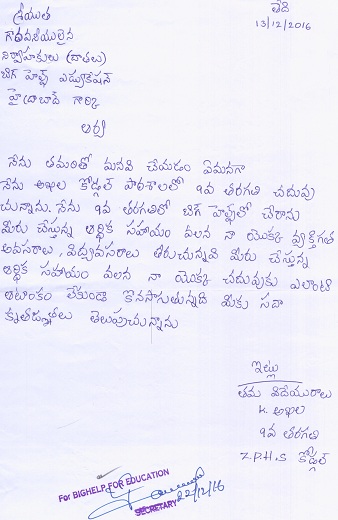 శ్రీయుత
తేది
13/12/2016
గౌరవనీయులైన
నిర్వాహకులు (దాతలు)
బిగ్ హెల్ప్ ఎడ్యుకేషన్
హైదరాబాద్ గార్కి
ఆర్య
నేను తమరితో మనవి చేయడం ఏమనగా
నేను అఖిల కోడ్గల్ పాఠశాలలో 9వ తరగతి చదువు
చున్నాను. నేను 9వ తరగతిలో బిగ్ హెల్ప్‌లో చేరాను
మీరు చేస్తున్న ఆర్థిక సహాయం వలన నా యొక్క వ్యక్తిగత
అవసరాలు, విద్యావసరాలు తీరుచున్నవి మీరు చేస్తున్న
ఆర్థిక సహాయం వలన నా యొక్క చదువుకు ఎలాంటి
ఆటంకం లేకుండా కొనసాగుతున్నది మీకు సదా
కృతజ్ఞతలు తెలుపుచున్నాను
ఇట్లు
తమ విదేయురాలు
K. అఖిల
9వ తరగతి
Z.P.H.S కోడ్గల్
For BIGHELP FOR EDUCATION
22/12/16
SECRETARY